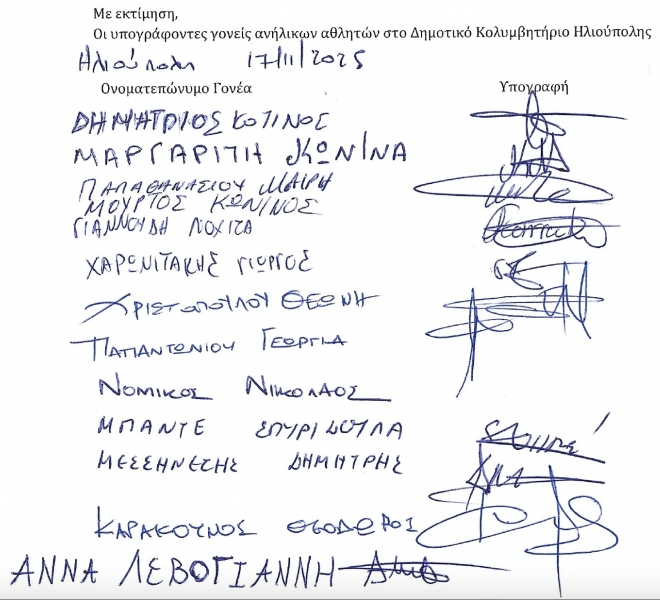 Με εκτίμηση,
Οι υπογράφοντες γονείς ανήλικων αθλητών στο Δημοτικό Κολυμβητήριο Ηλιούπολης
Ηλιούπολη 17/11/2025
Ονοματεπώνυμο Γονέα Υπογραφή
ΔΗΜΗΤΡΙΟΣ ΚΟΤΙΝΟΣ
ΜΑΡΓΑΡΙΤΗ ΚΩΝ/ΝΑ
ΠΑΠΑΘΑΝΑΣΙΟΥ ΜΑΙΡΗ
ΜΟΥΡΤΟΣ ΚΩΝ/ΝΟΣ
ΓΙΑΝΝΟΥΔΗ
ΧΑΡΩΝΙΤΑΚΗΣ ΓΙΩΡΓΟΣ
ΧΡΙΣΤΟΠΟΥΛΟΥ ΘΕΩΝΗ
ΠΑΠΑΝΤΩΝΙΟΥ ΓΕΩΡΓΙΑ
ΝΟΜΙΚΟΣ ΝΙΚΟΛΑΟΣ
ΜΠΑΝΤΕ ΣΠΥΡΙΔΟΥΛΑ
ΜΕΣΣΗΝΕΖΗΣ ΔΗΜΗΤΡΗΣ
ΚΑΡΑΚΟΥΝΟΣ ΘΕΟΔΩΡΟΣ
ΑΝΝΑ ΛΕΒΟΓΙΑΝΝΗ